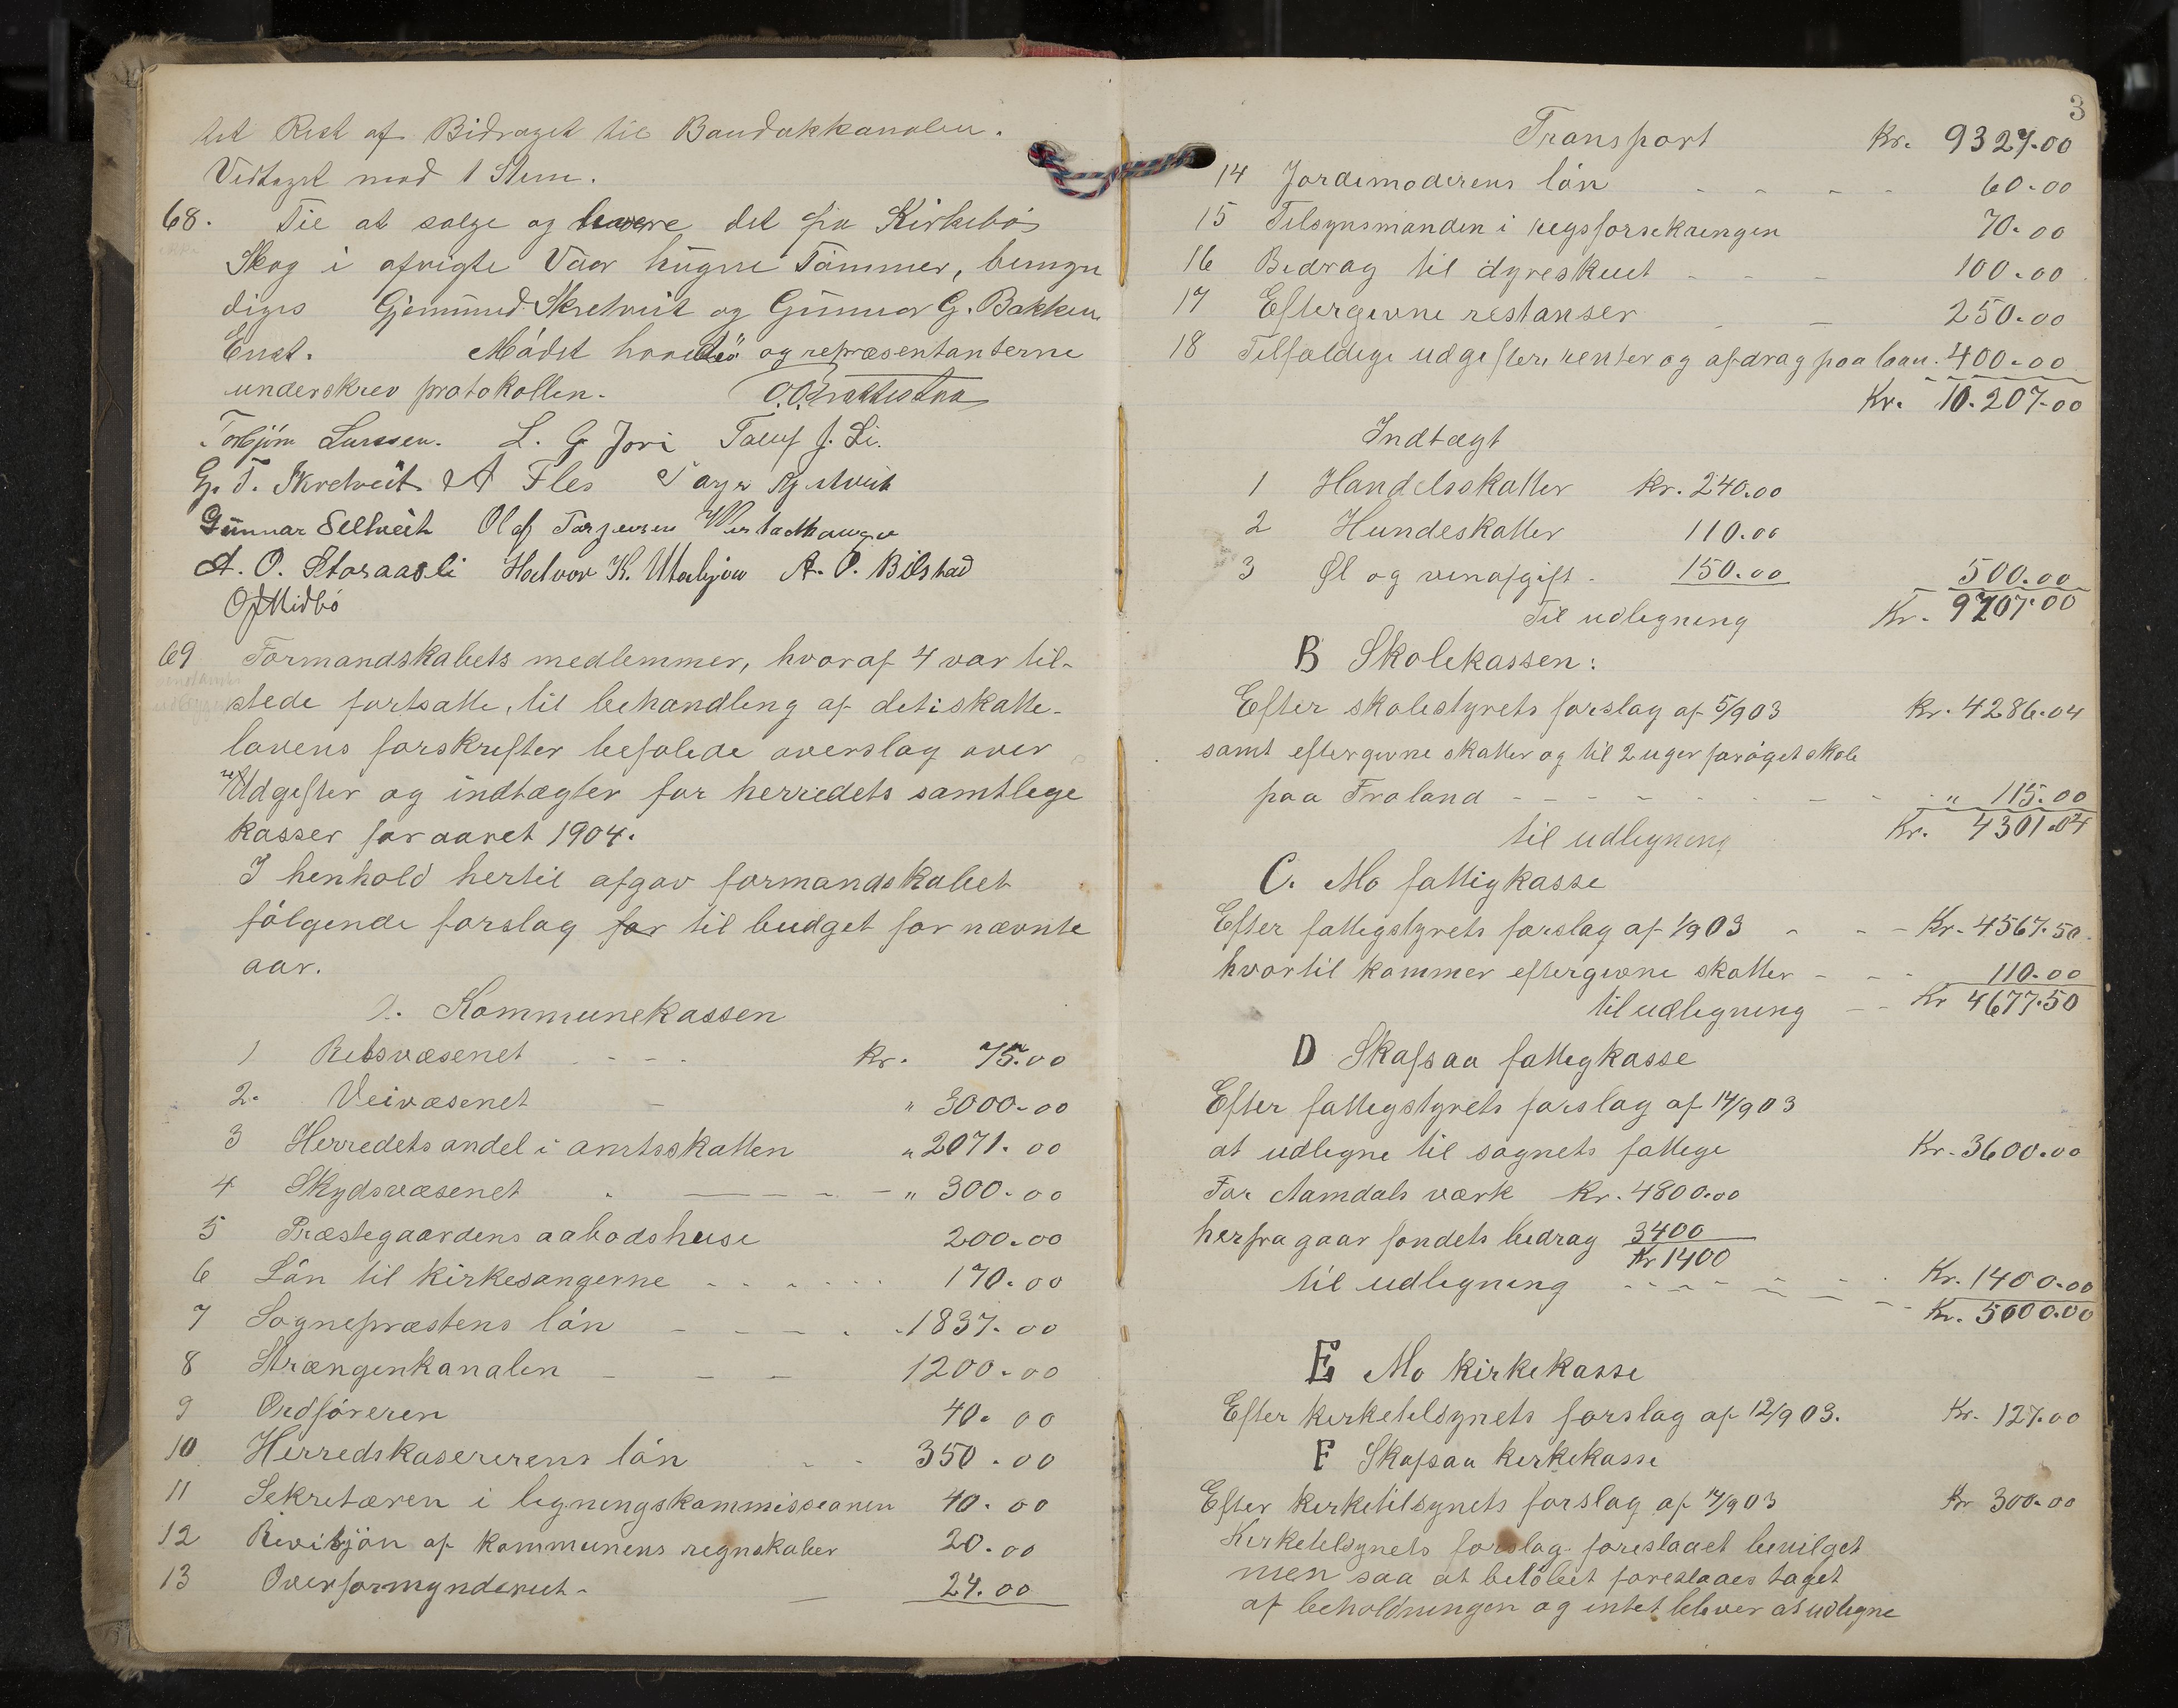 tet Rest af Bidraget til Bandakkanalen.
Vedtaget mod 1 Stem.
68. Til at sælge og levere det fra Kirkebø
Skog i afvigte Vaar hugne Tømmer, bemyn
diges Gjermund Skretveit og Gunnar G. Bakken
Enst. Mødet hævedes og repræsentanterne
underskrev protokollen.
Torbjørn Larssen. L. G. Jori J. Li.
G. T. Skretveit A Fles
Gunnar Seltveit Olaf Torjussen
A. O. Storaasli Halvor K. A. O. Bilstad
O J Midbø
69 Formandskabets medlemmer, hvoraf 4 var til-
stede fortsatte, til behandling af det i skatte-
lovens forskrifter befalede overslag over
Udgifter og indtægter for herredets samtlege
kasser for aaret 1904.
I henhold hertil afgav formandskabet
følgende forslag for til budget for nævnte
aar.
A. Kommunekassen
1 Retsvæsenet Kr. 75.00
2. Veivæsenet " 3000.00
3 Herredets andel i amtsskatten " 2071.00
4 Skydsvæsenet " 300.00
5 Præstegaardens aabodshuse 200.00
6 Løn til kirkesangerne 170.00
7 Sognepræstens løn 1837.00
8 Strængenkanalen 1200.00
9 Ordføreren 40.00
10 Herredskasererens løn 350.00
11 Sekretæren i ligningskommissionen 40.00
12 Revisjon af kommunens regnskaber 20.00
13 Overformynderiet 24.00
3
Transport Kr. 9327.00
14 Jordemoderens løn 60.00
15 Tilsynsmanden i 70.00
16 Bidrag til dyreskuet 100.00
17 Eftergivne restanser 250.00
18 Tilfældige udgifter, renter og afdrag paa laan. 400.00
Kr. 10.207.00
Indtægt
1 Handelsskatter Kr. 240.00
2 Hundeskatter 110.00
3 Øl og vinafgift 150.00 500.00
Til udligning Kr. 9707.00
B Skolekassen:
Efter skolestyrets forslag af 5/9 03 Kr. 4286.04
samt eftergivne skatter og til 2 uger forøget skole
paa Froland " 115.00
til udligning Kr. 4301.04
C. Mo fattigkasse
Efter fattigstyrets forslag af 1/9 03 Kr. 4567.50
hvortil kommer eftergivne skatter 110.00
til udligning Kr 4677.50
D Skafsaa fattigkasse
Efter fattigstyrets forslag af 14/9 03
at udligne til sognets fattige Kr. 3600.00
For Aamdals værk Kr. 4800.00
herfra gaar fondets bidrag 3400
Kr 1400
til udligning Kr. 1400.00
Kr. 5000.00
E Mo kirkekasse
Efter kirketilsynets forslag af 12/9 03. Kr. 127.00
F Skafsaa kirkekasse
Efter kirketilsynets forslag af 14/9 03 Kr 300.00
Kirketilsynets forslag foreslaaet bevilget
men saa at beløbet foreslaaes taget
af beholdningen og intet bliver at udligne